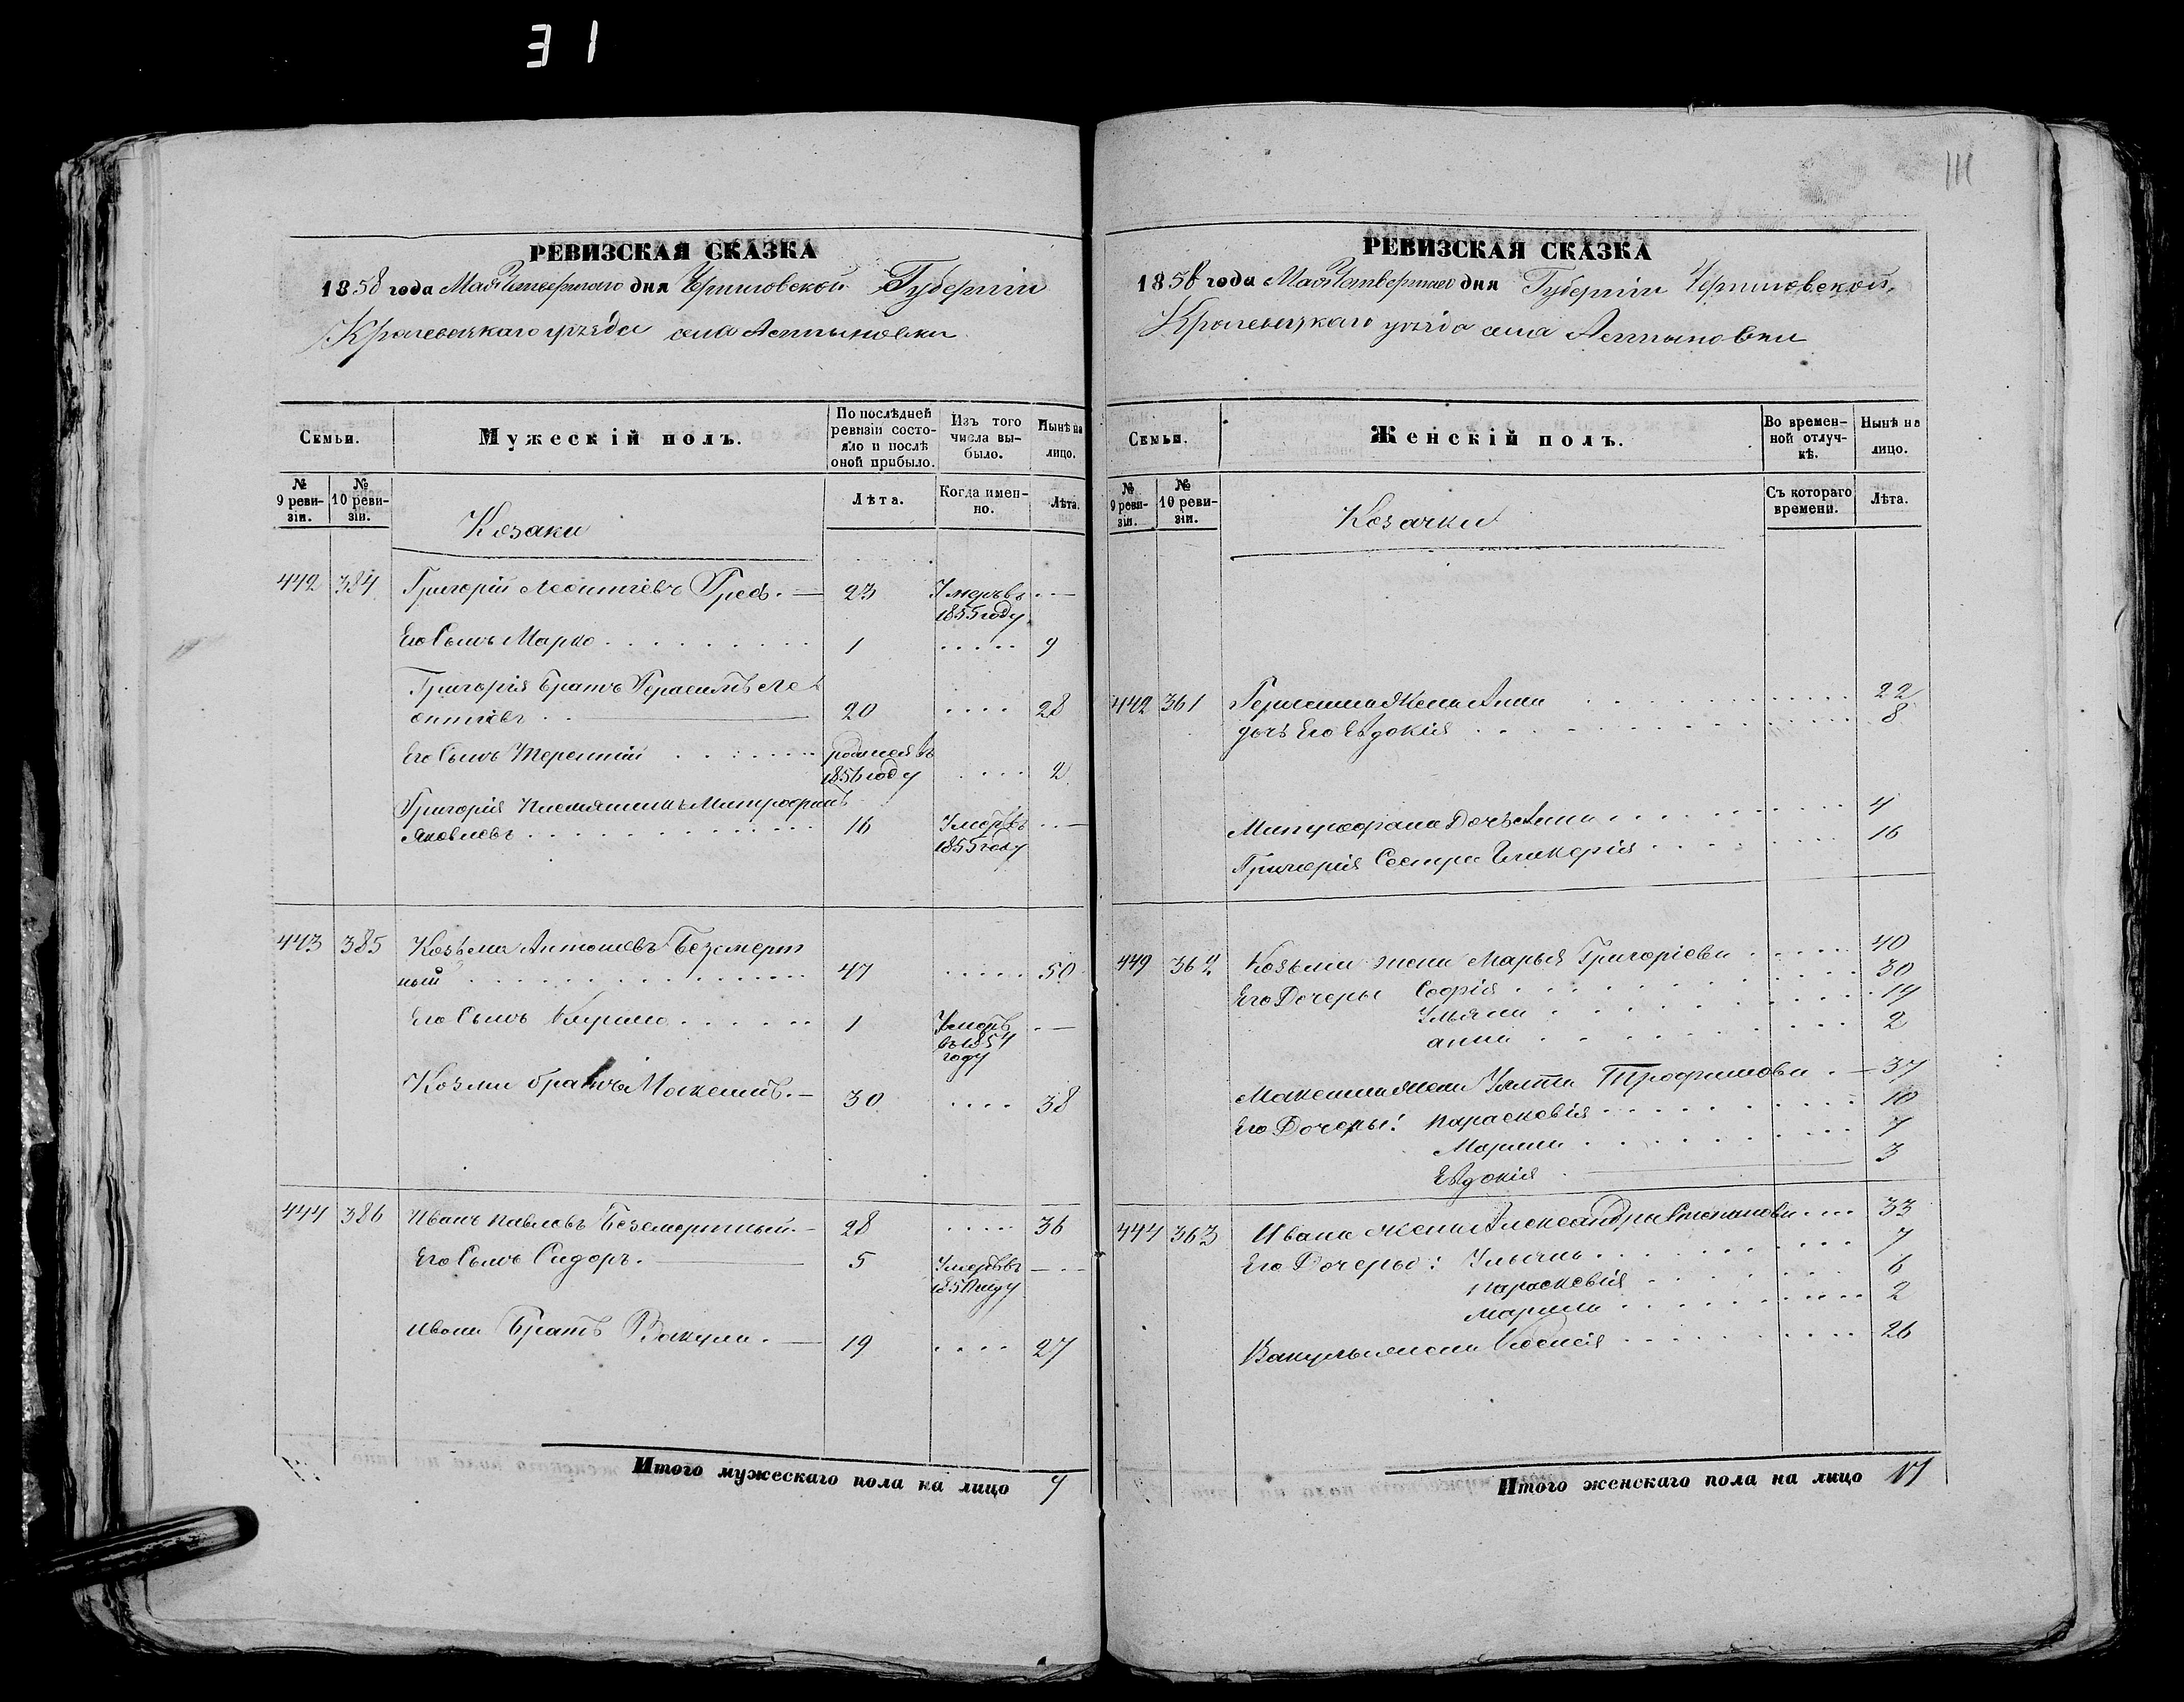 31
РЕВИЗСКАЯ СКАЗКА
1858 года Мая Четвертаго дня Черниговской Губерніи
Кролевецкаго уѣзда села Алтыновки
Семьи.
Мужескій полъ.
По послѣдней ревизіи состояло и послѣ оной прибыло.
Изъ того числа выбыло.
Нынѣ на лицо.
№ 9 ревизіи.
№ 10 ревизіи.
Лѣта.
Когда именно.
Лѣта.
Козаки
442 384 Григорій Леонтіевъ 23 Умеръ въ
1855 году
Его Сынъ Марко 1 9
Григорія Братъ Герасимъ Ле
онтіевъ 20 28
Его Сынъ Терентій родился въ
1856 году 2
Григорія Племянникъ Митрофанъ
Яковлевъ 16 Умеръ въ
1855 году
443 385 Козьма Антоновъ Безсмерт
ный 47 50
Его Сынъ 1 Умеръ
въ 1854
году
Козьми братъ Максимъ 30 38
444 386 Иванъ Павловъ Безсмертный 28 36
Его Сынъ Сидоръ 5 Умеръ въ
году
Ивана Братъ Вакула 19 27
Итого мужескаго пола на лицо 7
111
РЕВИЗСКАЯ СКАЗКА
1858 года Мая Четвертаго дня Губерніи Черниговской,
Кролевецкаго уѣзда села Алтыновки
Семьи.
Женскій полъ.
Во временной отлучкѣ.
Нынѣ на лицо.
№ 9 ревизіи.
№ 10 ревизіи.
Съ котораго времени.
Лѣта.
Козачки
442 361 Герасима Жена Анна 22
дочь Его Евдокія 8
Митрофана Дочь Анна 4
Григорія Сестра Гликерія 16
449 362 Козьми жена Марья Григоріева 40
Его Дочеры Софія 30
Ульяна 14
анна 2
Максима жена Трофимова 37
Его Дочеры: Параскевія 10
Марина 7
Евдокія 3
444 363 Ивана жена Александра Степанова 33
Его Дочеры: Ульяна 7
Параскевія 6
Марина 2
Вакулы жена 26
Итого женскаго пола на лицо 17